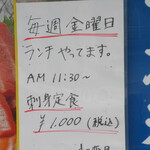 毎週金曜日
ランチやってます。
AM 11:30～
刺身定食
¥1,000 (税込)